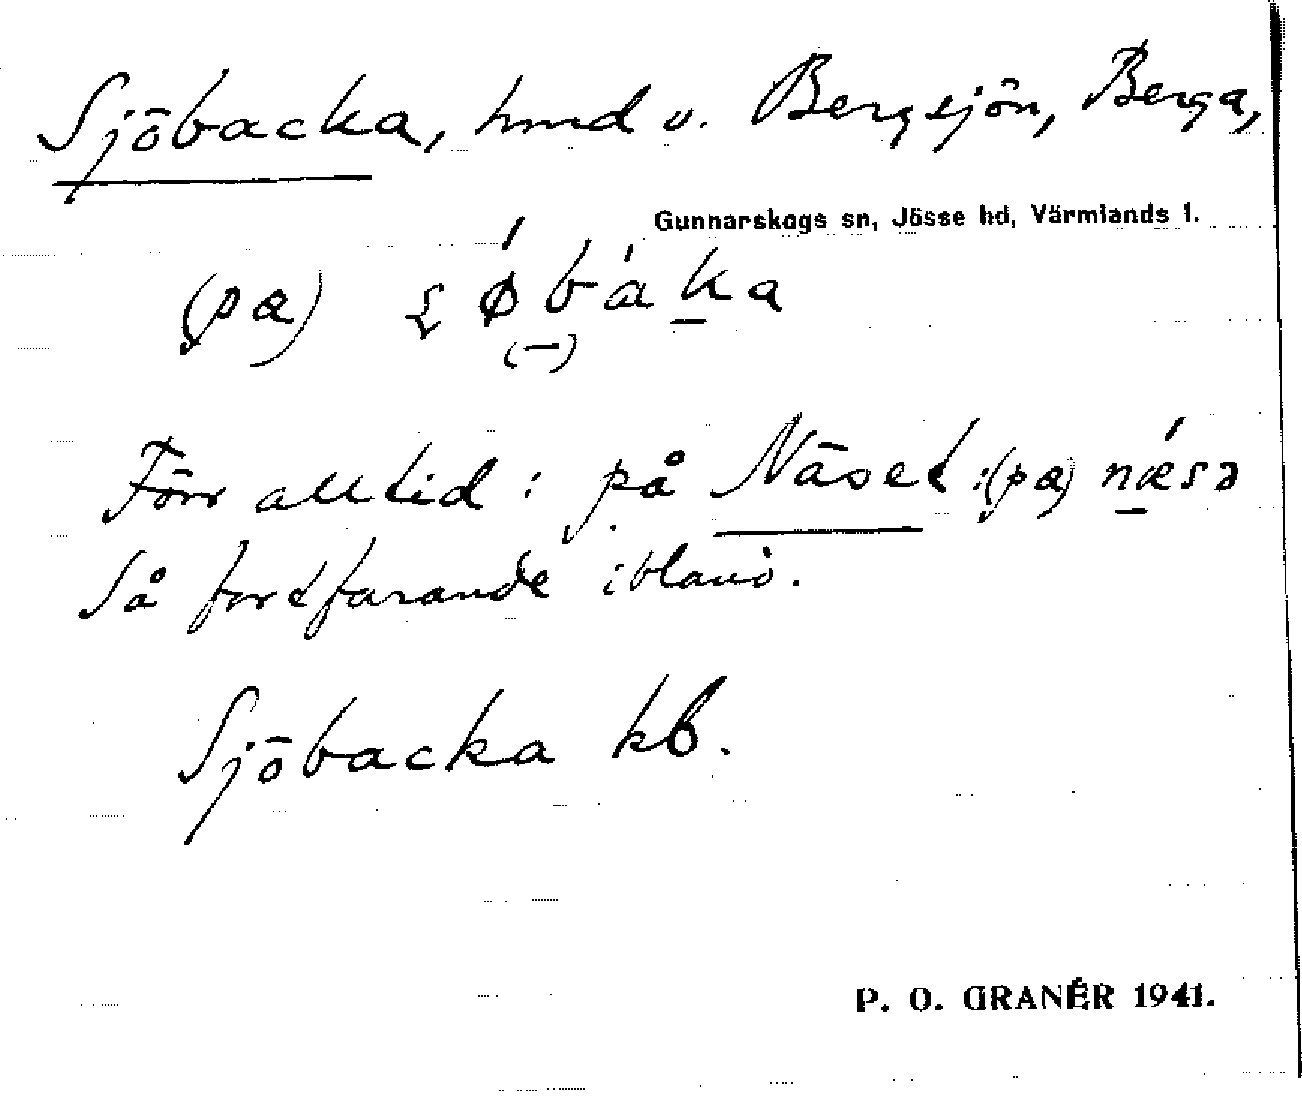 Sjöbacka, hmd v. Bergsjön, Berga,
Gunnarskogs sn, Jösse hd, Värmlands l.
(pæ) ʂǿbàka
(–)
Förr alltid: på Näset :(pæ) nǽsə
Så fortfarande ibland.
Sjöbacka kb.
P. O. GRANÉR 1941.